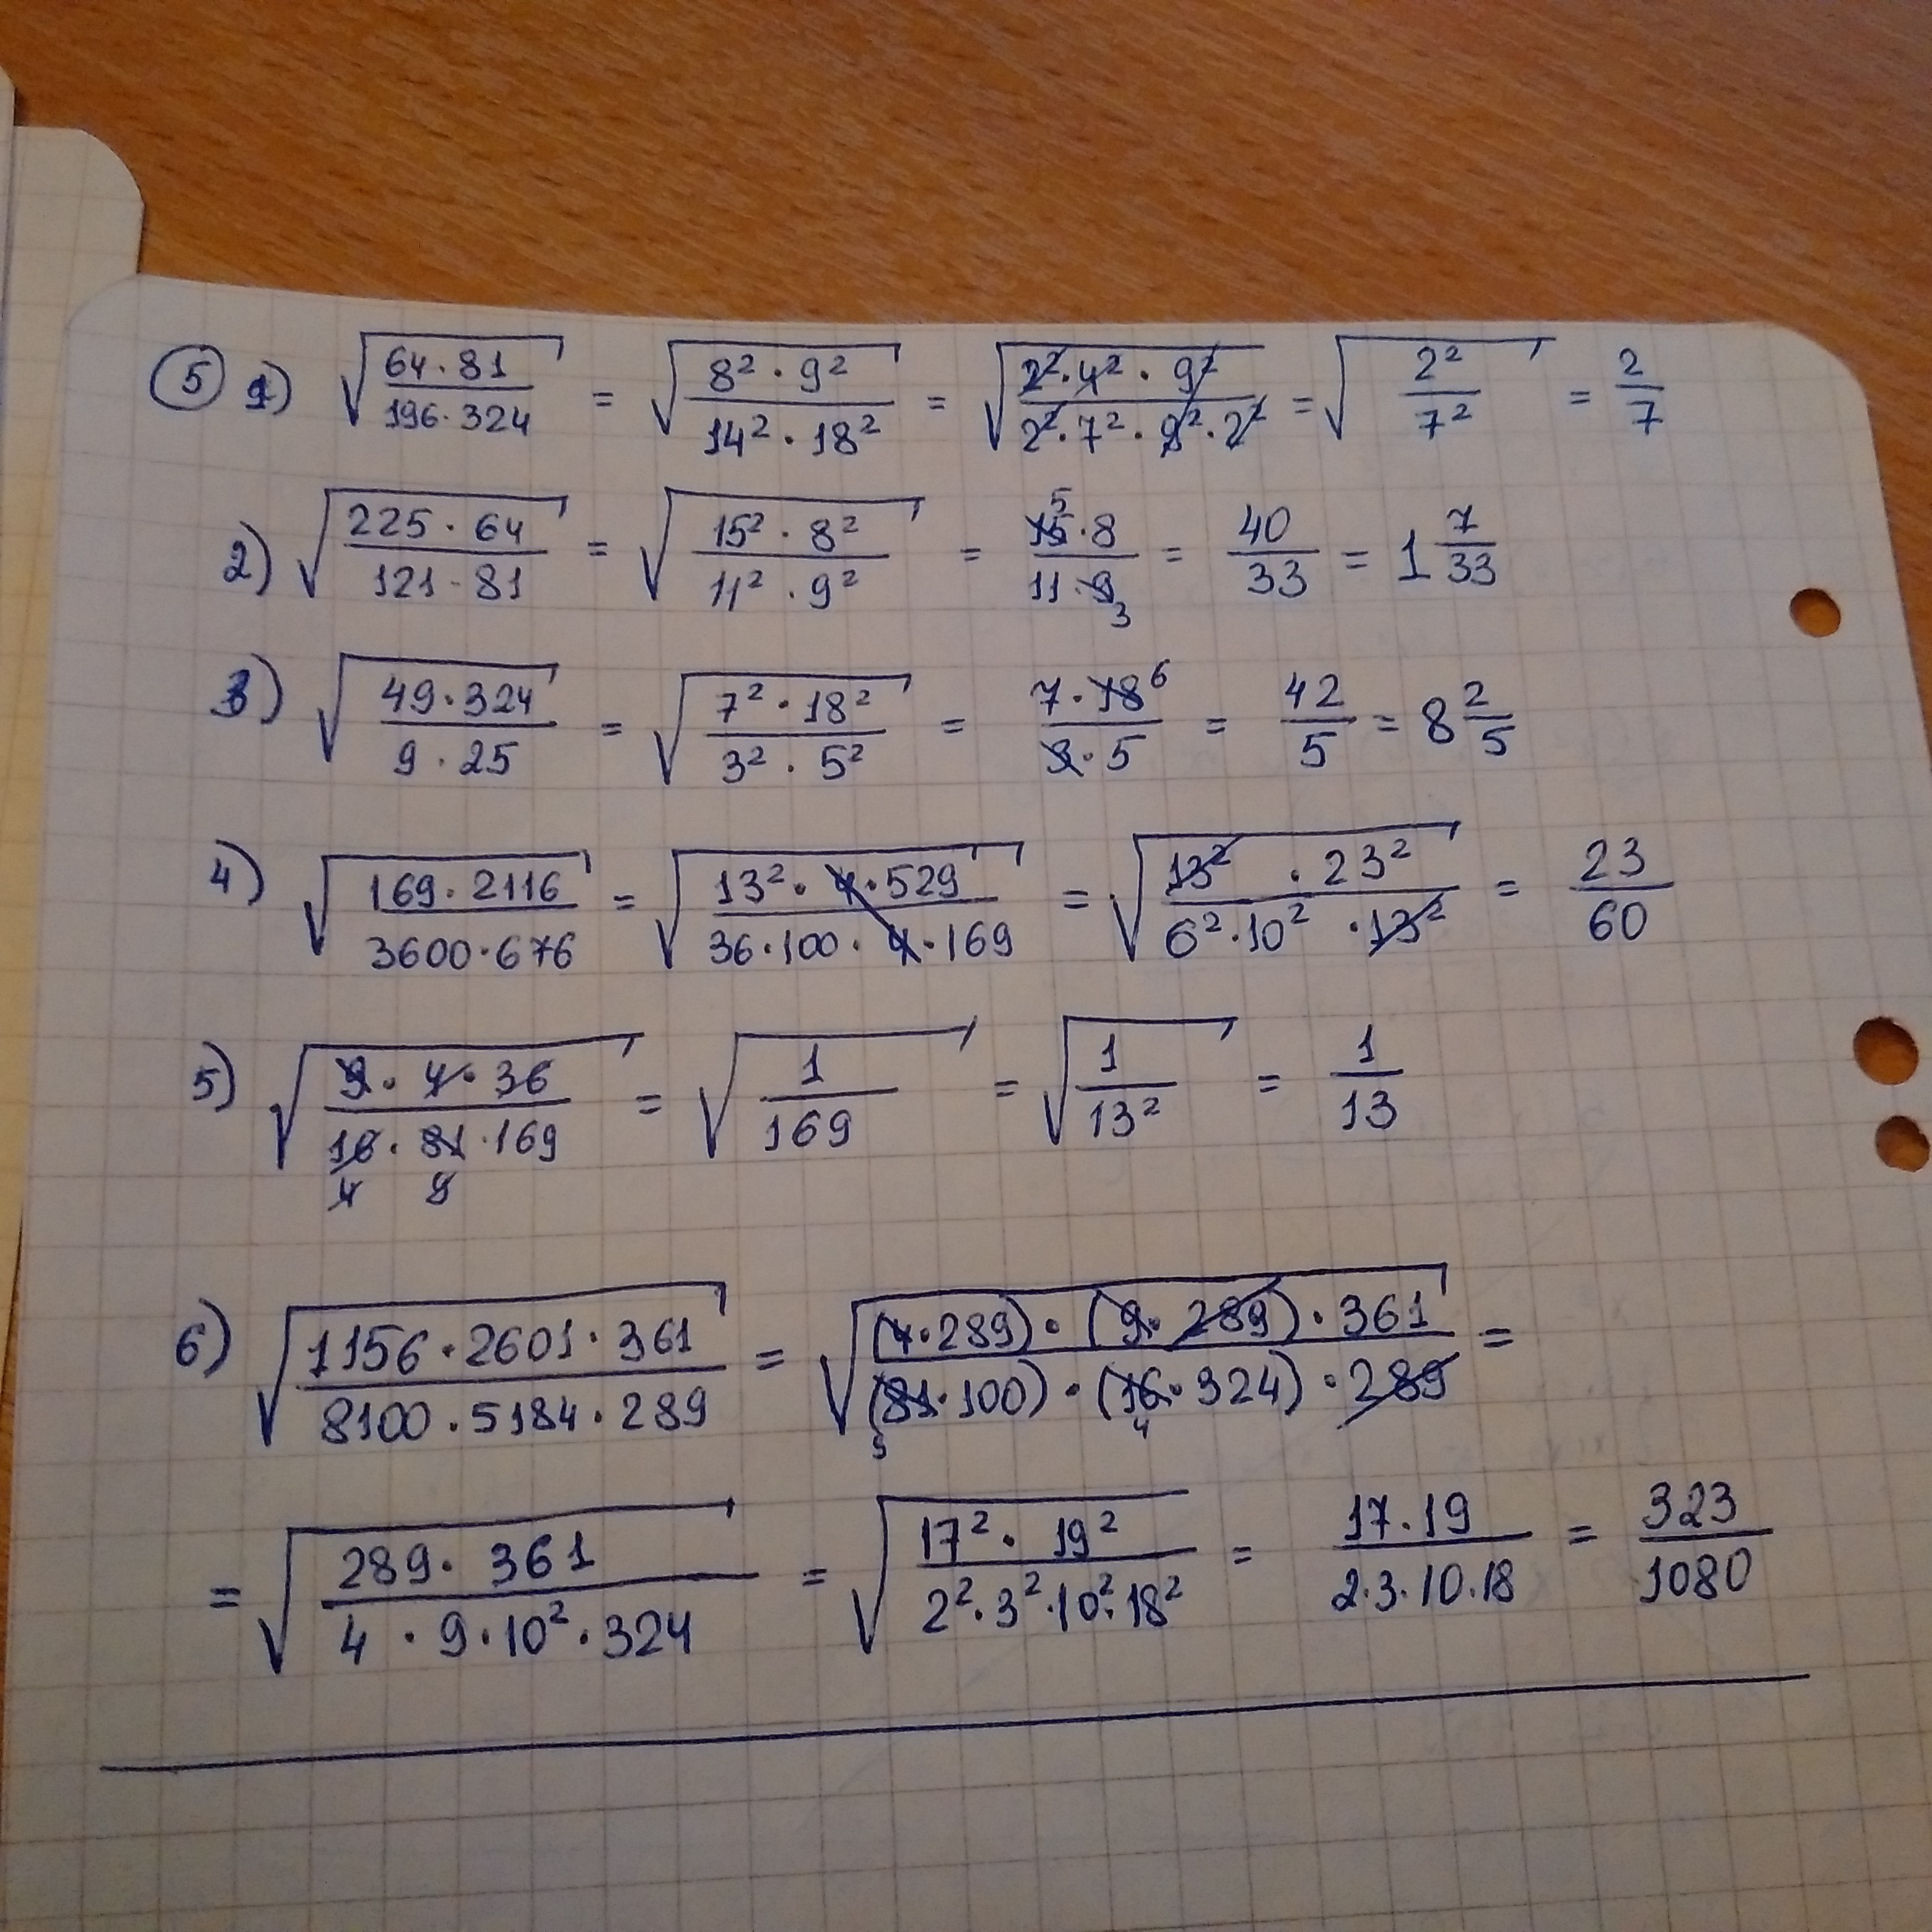 ⑤ 1) √(64·81 / 196·324) = √(8²·9² / 14²·18²) = √(2²·4²·9² / 2²·7²·9²·2²) = √(2² / 7²) = 2/7
2) √(225·64 / 121·81) = √(15²·8² / 11²·9²) = 15·8 / 11·9 (5, 3) = 40/33 = 1 7/33
3) √(49·324 / 9·25) = √(7²·18² / 3²·5²) = 7·18 / 3·5 (6) = 42/5 = 8 2/5
4) √(169·2116 / 3600·676) = √(13²·4·529 / 36·100·4·169) = √(13²·23² / 6²·10²·13²) = 23/60
5) √(9·4·36 / 16·81·169) (4, 9) = √(1 / 169) = √(1 / 13²) = 1/13
6) √(1156·2601·361 / 8100·5184·289) = √((4·289)·(9·289)·361 / (81·100)·(16·324)·289) (9, 4) =
= √(289·361 / 4·9·10²·324) = √(17²·19² / 2²·3²·10²·18²) = 17·19 / 2·3·10·18 = 323/1080